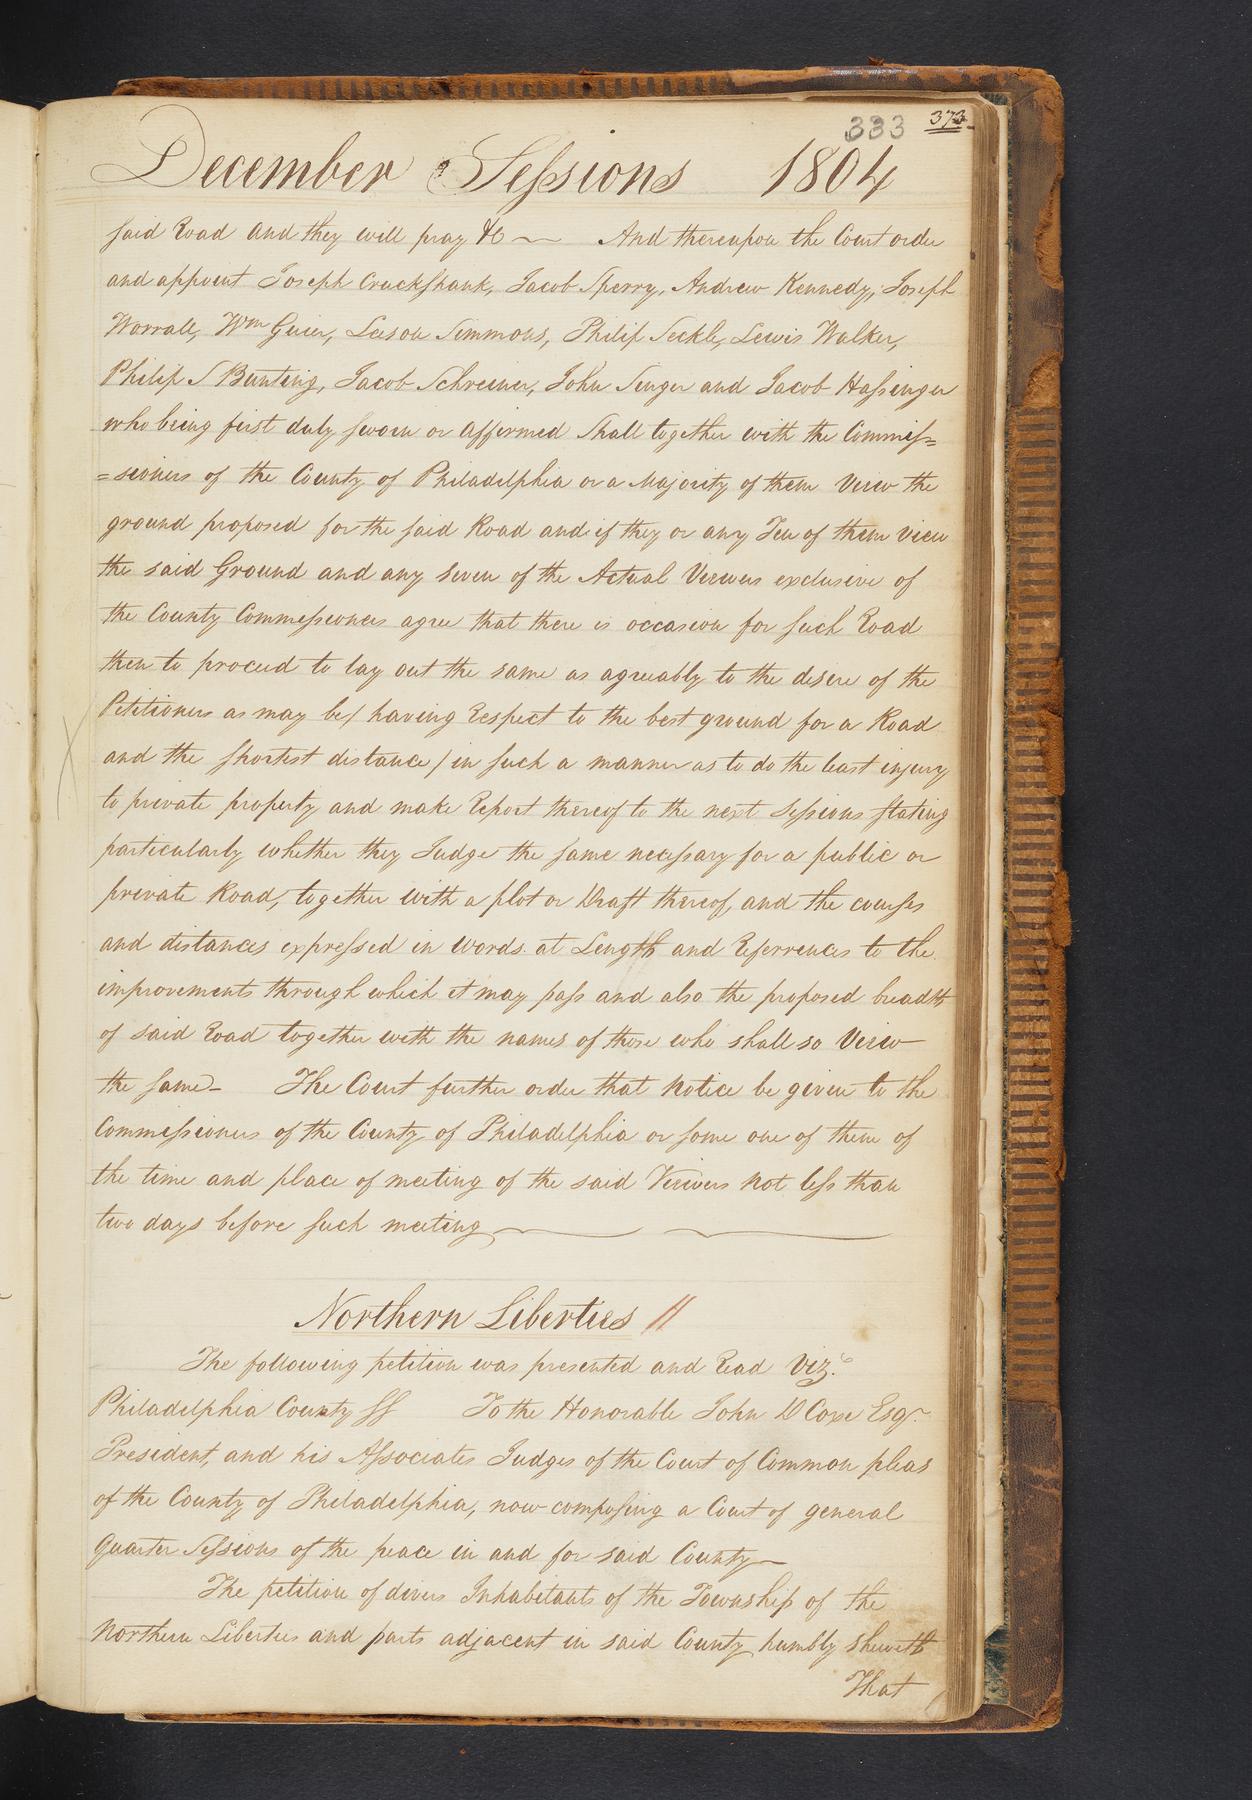 333 373
December Sessions 1804
said Road and they will pray &c — And thereupon the Court order
and appoint Joseph Cruckshank, Jacob Sperry, Andrew Kennedy, Joseph
Worrall, Wm Guier, Leeson Simmons, Philip Seckle, Lewis Walker,
Philip S Bunting, Jacob Schreiner, John Singer and Jacob Hassinger
who being first duly sworn or affirmed Shall together with the Commis=
=sioners of the County of Philadelphia or a Majority of them View the
ground proposed for the said Road and if they or any Ten of them view
the said Ground and any seven of the Actual Viewers exclusive of
the County Commissioners agree that there is occasion for such Road
then to proceed to lay out the same as agreeably to the desire of the
Petitioners as may be/ having Respect to the best ground for a Road
and the shortest distance/ in such a manner as to do the least injury
to private property and make Report thereof to the next Sessions stating
particularly whether they Judge the same necessary for a public or
private Road, together with a plot or Draft thereof, and the courses
and distances expressed in words at Length and Referrences to the
improvements through which it may pass and also the proposed breadth
of said Road together with the names of those who shall so View
the same — The Court further order that Notice be given to the
Commissioners of the County of Philadelphia or some one of them of
the time and place of meeting of the said Viewers not less than
two days before such meeting
Northern Liberties //
The following petition was presented and Read Vizt.
Philadelphia County SS To the Honorable John D Coxe Esqr
President, and his Associates Judges of the Court of Common pleas
of the County of Philadelphia, now composing a Court of general
Quarter Sessions of the peace in and for said County —
The petition of divers Inhabitants of the Township of the
Northern Liberties and parts adjacent in said County humbly sheweth
That